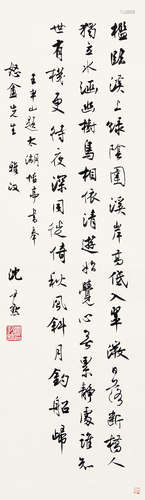 檻臨溪上綠陰圍溪岸高低入翠微日落斷橋人
獨立水涵幽樹鳥相依清遊始覺心无累靜處誰知
世有機更待夜深同徙倚秋風斜月釣船歸
王半山題太湖恬亭書奉
怒盦先生 雅
沈尹默